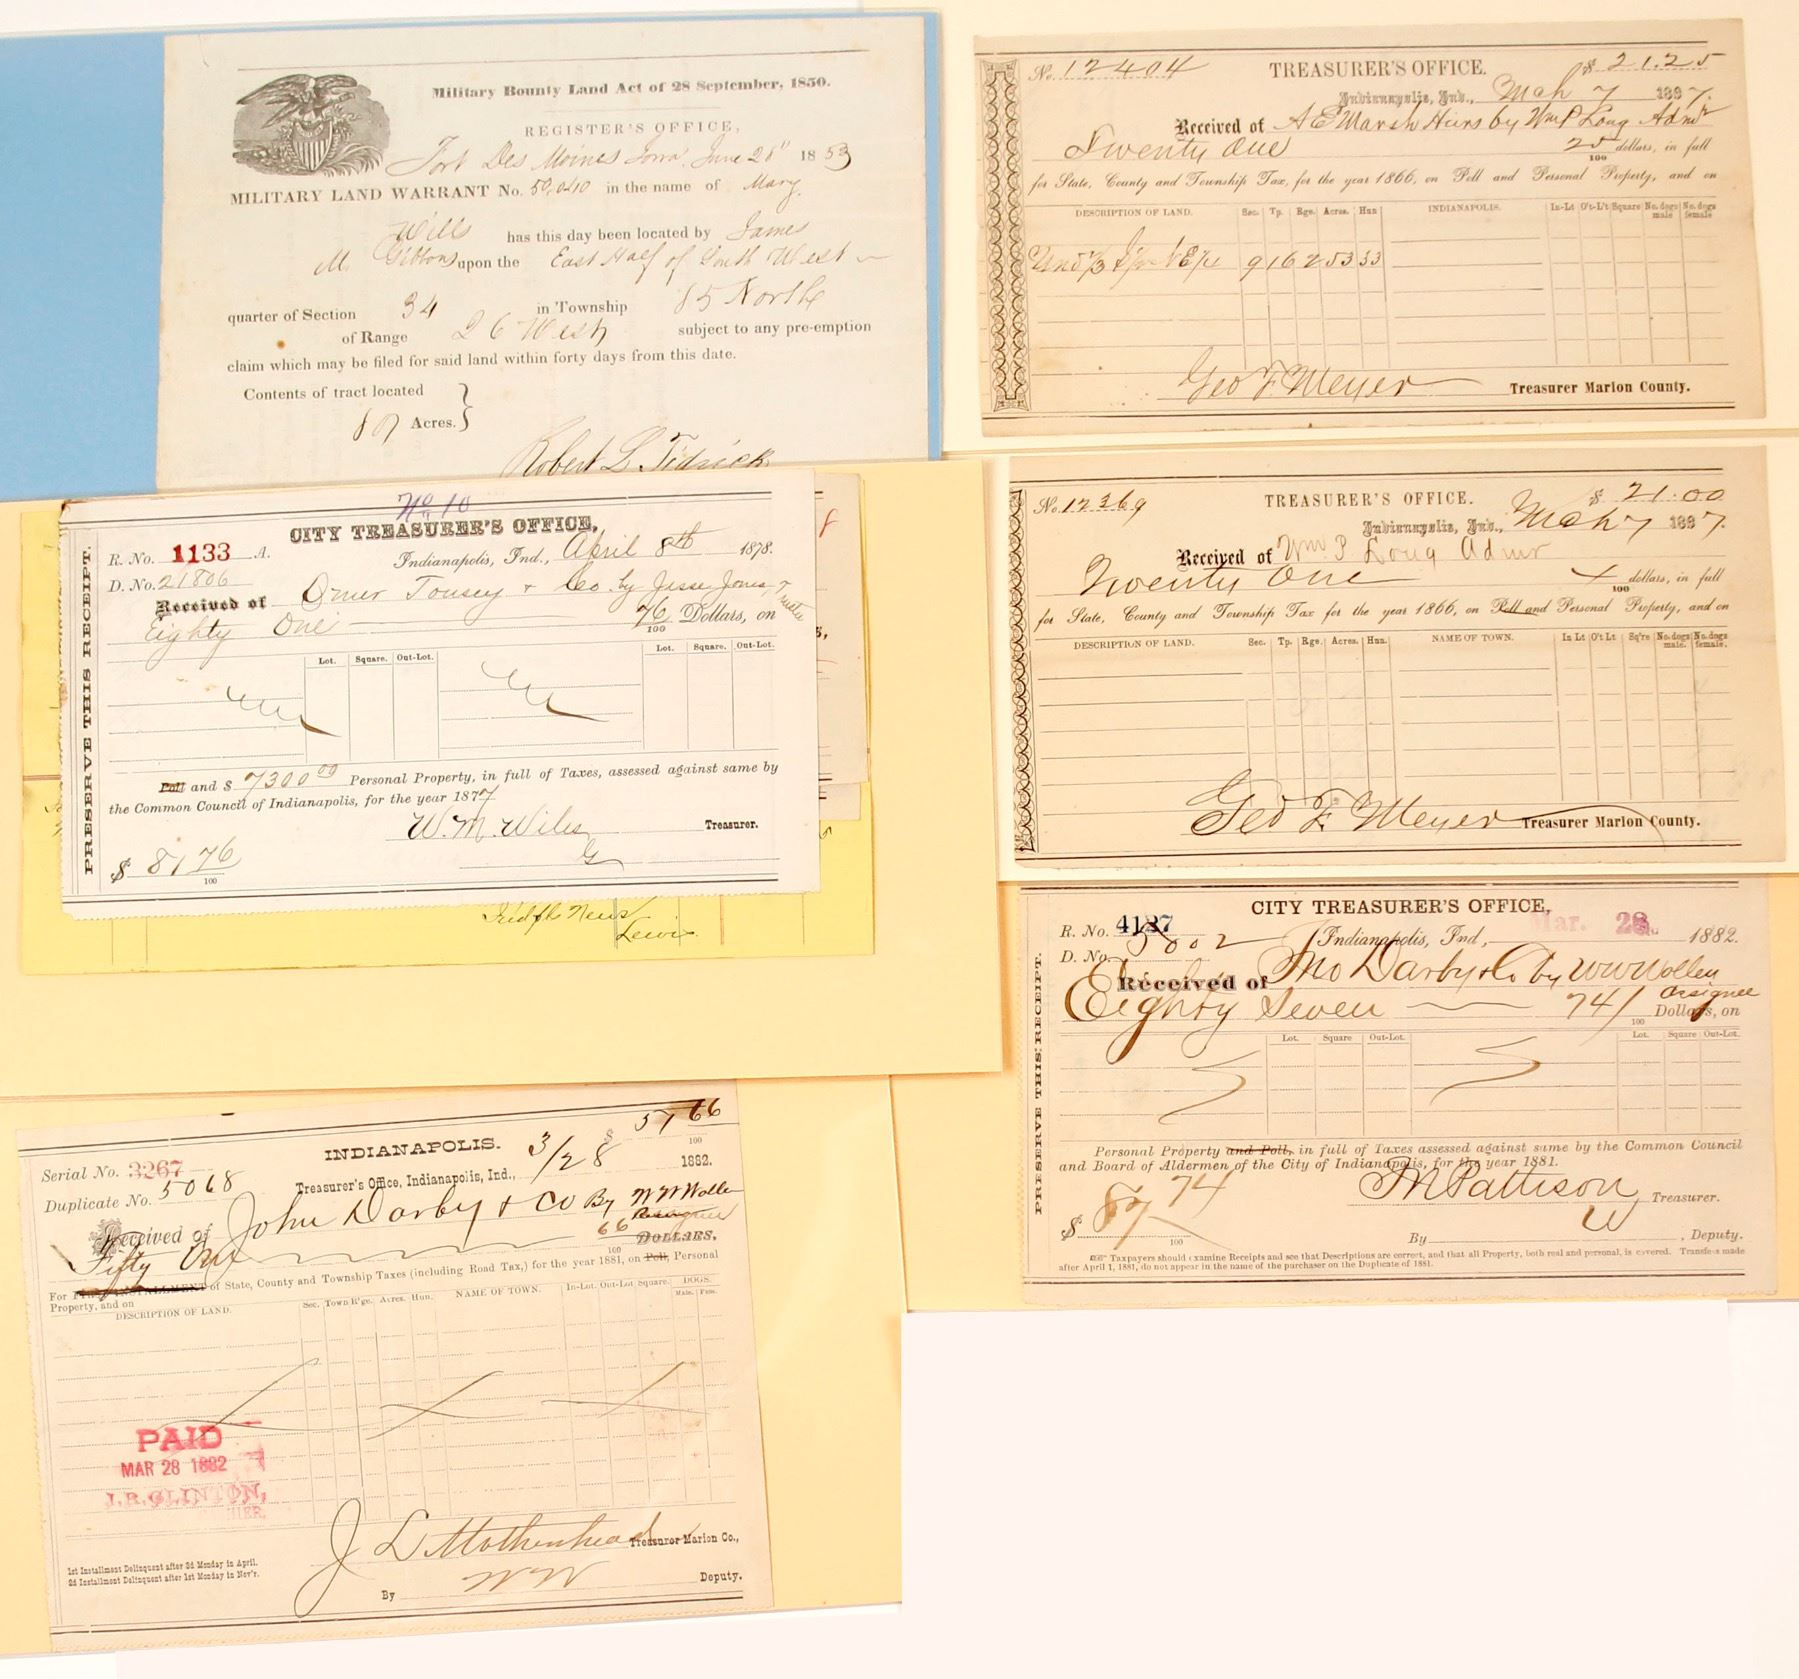 Military Bounty Land Act of 28 September, 1850.
REGISTER'S OFFICE,
Fort Des Moines Iowa, June 28" 1853
MILITARY LAND WARRANT No. 50,040 in the name of Mary
Wills has this day been located by James
M. Gittons upon the East Half of South West
quarter of Section 34 in Township 85 North
of Range 26 West subject to any pre-emption
claim which may be filed for said land within forty days from this date.
Contents of tract located
80 Acres.
Robert L. Tidrick
No. 12404 TREASURER'S OFFICE. $ 21.25
Indianapolis, Ind., Mch 7 1867.
Received of A E Marsh Heirs by Wm P Long Admr
Twenty One 25/100 dollars, in full
for State, County and Township Tax, for the year 1866, on Poll and Personal Property, and on
DESCRIPTION OF LAND. Sec. Tp. Rge. Acres. Hun INDIANAPOLIS. In-Lt O't-L't Square No. dogs male No. dogs female
Und 1/3 N E 1/4 9 16 2 53 33
Geo F. Meyer Treasurer Marion County.
No. 10
CITY TREASURER'S OFFICE,
R. No. 1133 A. Indianapolis, Ind., April 8th 1878.
D. No. 21806
Received of Omer Tousey & Co. by Jesse Jones, Trustee
Eighty One 76/100 Dollars, on
Lot. Square. Out-Lot. Lot. Square. Out-Lot.
Poll and $ 7300 00 Personal Property, in full of Taxes, assessed against same by
the Common Council of Indianapolis, for the year 1877
W. M. Wiles Treasurer.
G
$ 81 76/100
PRESERVE THIS RECEIPT.
News
Lewis
No. 12369 TREASURER'S OFFICE. $ 21.00
Indianapolis, Ind., Mch 7 1867.
Received of Wm P Long Admr
Twenty One dollars, in full
for State, County and Township Tax for the year 1866, on Poll and Personal Property, and on
DESCRIPTION OF LAND. Sec. Tp. Rge. Acres. Hun. NAME OF TOWN. In Lt O't Lt Sq're No. dogs male. No. dogs female.
Geo F. Meyer Treasurer Marion County.
CITY TREASURER'S OFFICE,
R. No. 4127 Indianapolis, Ind, Mar. 28 1882.
D. No. 5002
Received of Jno Darby & Co by W W Wollen
Assignee
Eighty Seven 74/100 Dollars, on
Lot. Square Out-Lot. Lot. Square Out-Lot.
Personal Property and Poll, in full of Taxes assessed against same by the Common Council
and Board of Aldermen of the City of Indianapolis, for the year 1881.
Pattison Treasurer.
$ 87 74/100
By W, Deputy.
Taxpayers should examine Receipts and see that Descriptions are correct, and that all Property, both real and personal, is covered. Transfers made
after April 1, 1881, do not appear in the name of the purchaser on the Duplicate of 1881.
PRESERVE THIS RECEIPT.
INDIANAPOLIS. $ 51 66/100
Serial No. 3267 3/28 1882.
Duplicate No. 5068 Treasurer's Office, Indianapolis, Ind.,
Received of John Darby & Co By W W Wollen
Assignee
Fifty One 66/100 DOLLARS,
For FULL INSTALLMENT of State, County and Township Taxes (including Road Tax,) for the year 1881, on Poll, Personal
Property, and on
DESCRIPTION OF LAND. Sec. Town R'ge. Acres. Hun. NAME OF TOWN. In-Lot. Out-Lot Square. DOGS.
Male. Fem.
PAID
MAR 28 1882
J. R. CLINTON,
CASHIER.
J L Mothershead Treasurer Marion Co.,
1st Installment Delinquent after 3d Monday in April.
2d Installment Delinquent after 1st Monday in Nov'r.
By WW Deputy.